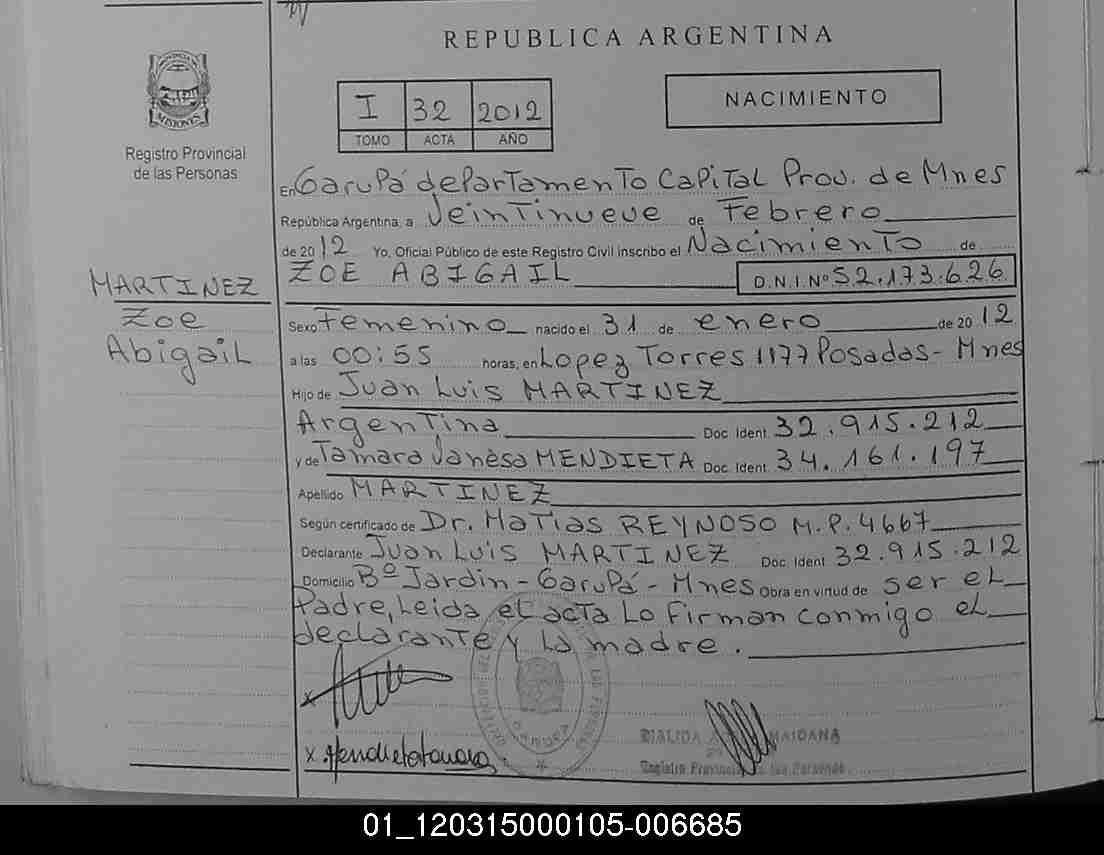 REPUBLICA ARGENTINA
I 32 2012
TOMO ACTA AÑO
NACIMIENTO
MISIONES
Registro Provincial
de las Personas
En Garupá departamento Capital Prov. de Mnes
República Argentina, a Veintinueve de Febrero
de 2012 Yo, Oficial Público de este Registro Civil inscribo el Nacimiento de
ZOE ABIGAIL D.N.I. Nº 52.173.626
MARTINEZ
Zoe
Abigail
Sexo Femenino nacido el 31 de enero de 2012
a las 00:55 horas, en Lopez Torres 1177 Posadas - Mnes
Hijo de Juan Luis MARTINEZ
Argentina Doc. Ident. 32.915.212
y de Tamara Vanesa MENDIETA Doc. Ident. 34.161.197
Apellido MARTINEZ
Según certificado de Dr. Matias REYNOSO M.P. 4667
Declarante Juan Luis MARTINEZ Doc. Ident. 32.915.212
Domicilio Bº Jardin - Garupá - Mnes Obra en virtud de ser el
Padre, Leida el acta lo firman conmigo el
declarante y la madre.
x
x Mendieta Tamara
MAIDANA
Registro Provincial de las Personas
01_120315000105-006685